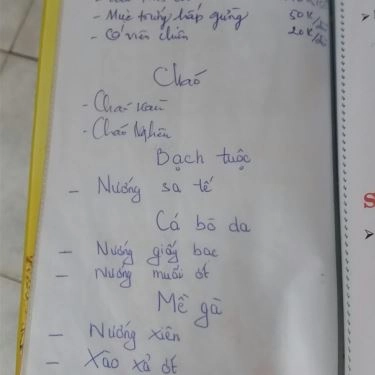 - Mực trứng hấp gừng 50K/
- Cá viên chiên 20K/
Cháo
- Cháo
- Cháo Nghêu
Bạch tuộc
- Nướng sa tế
Cá bò da
- Nướng giấy bạc
- Nướng muối ớt
Mề gà
- Nướng xiên
- Xào xả ớt
S